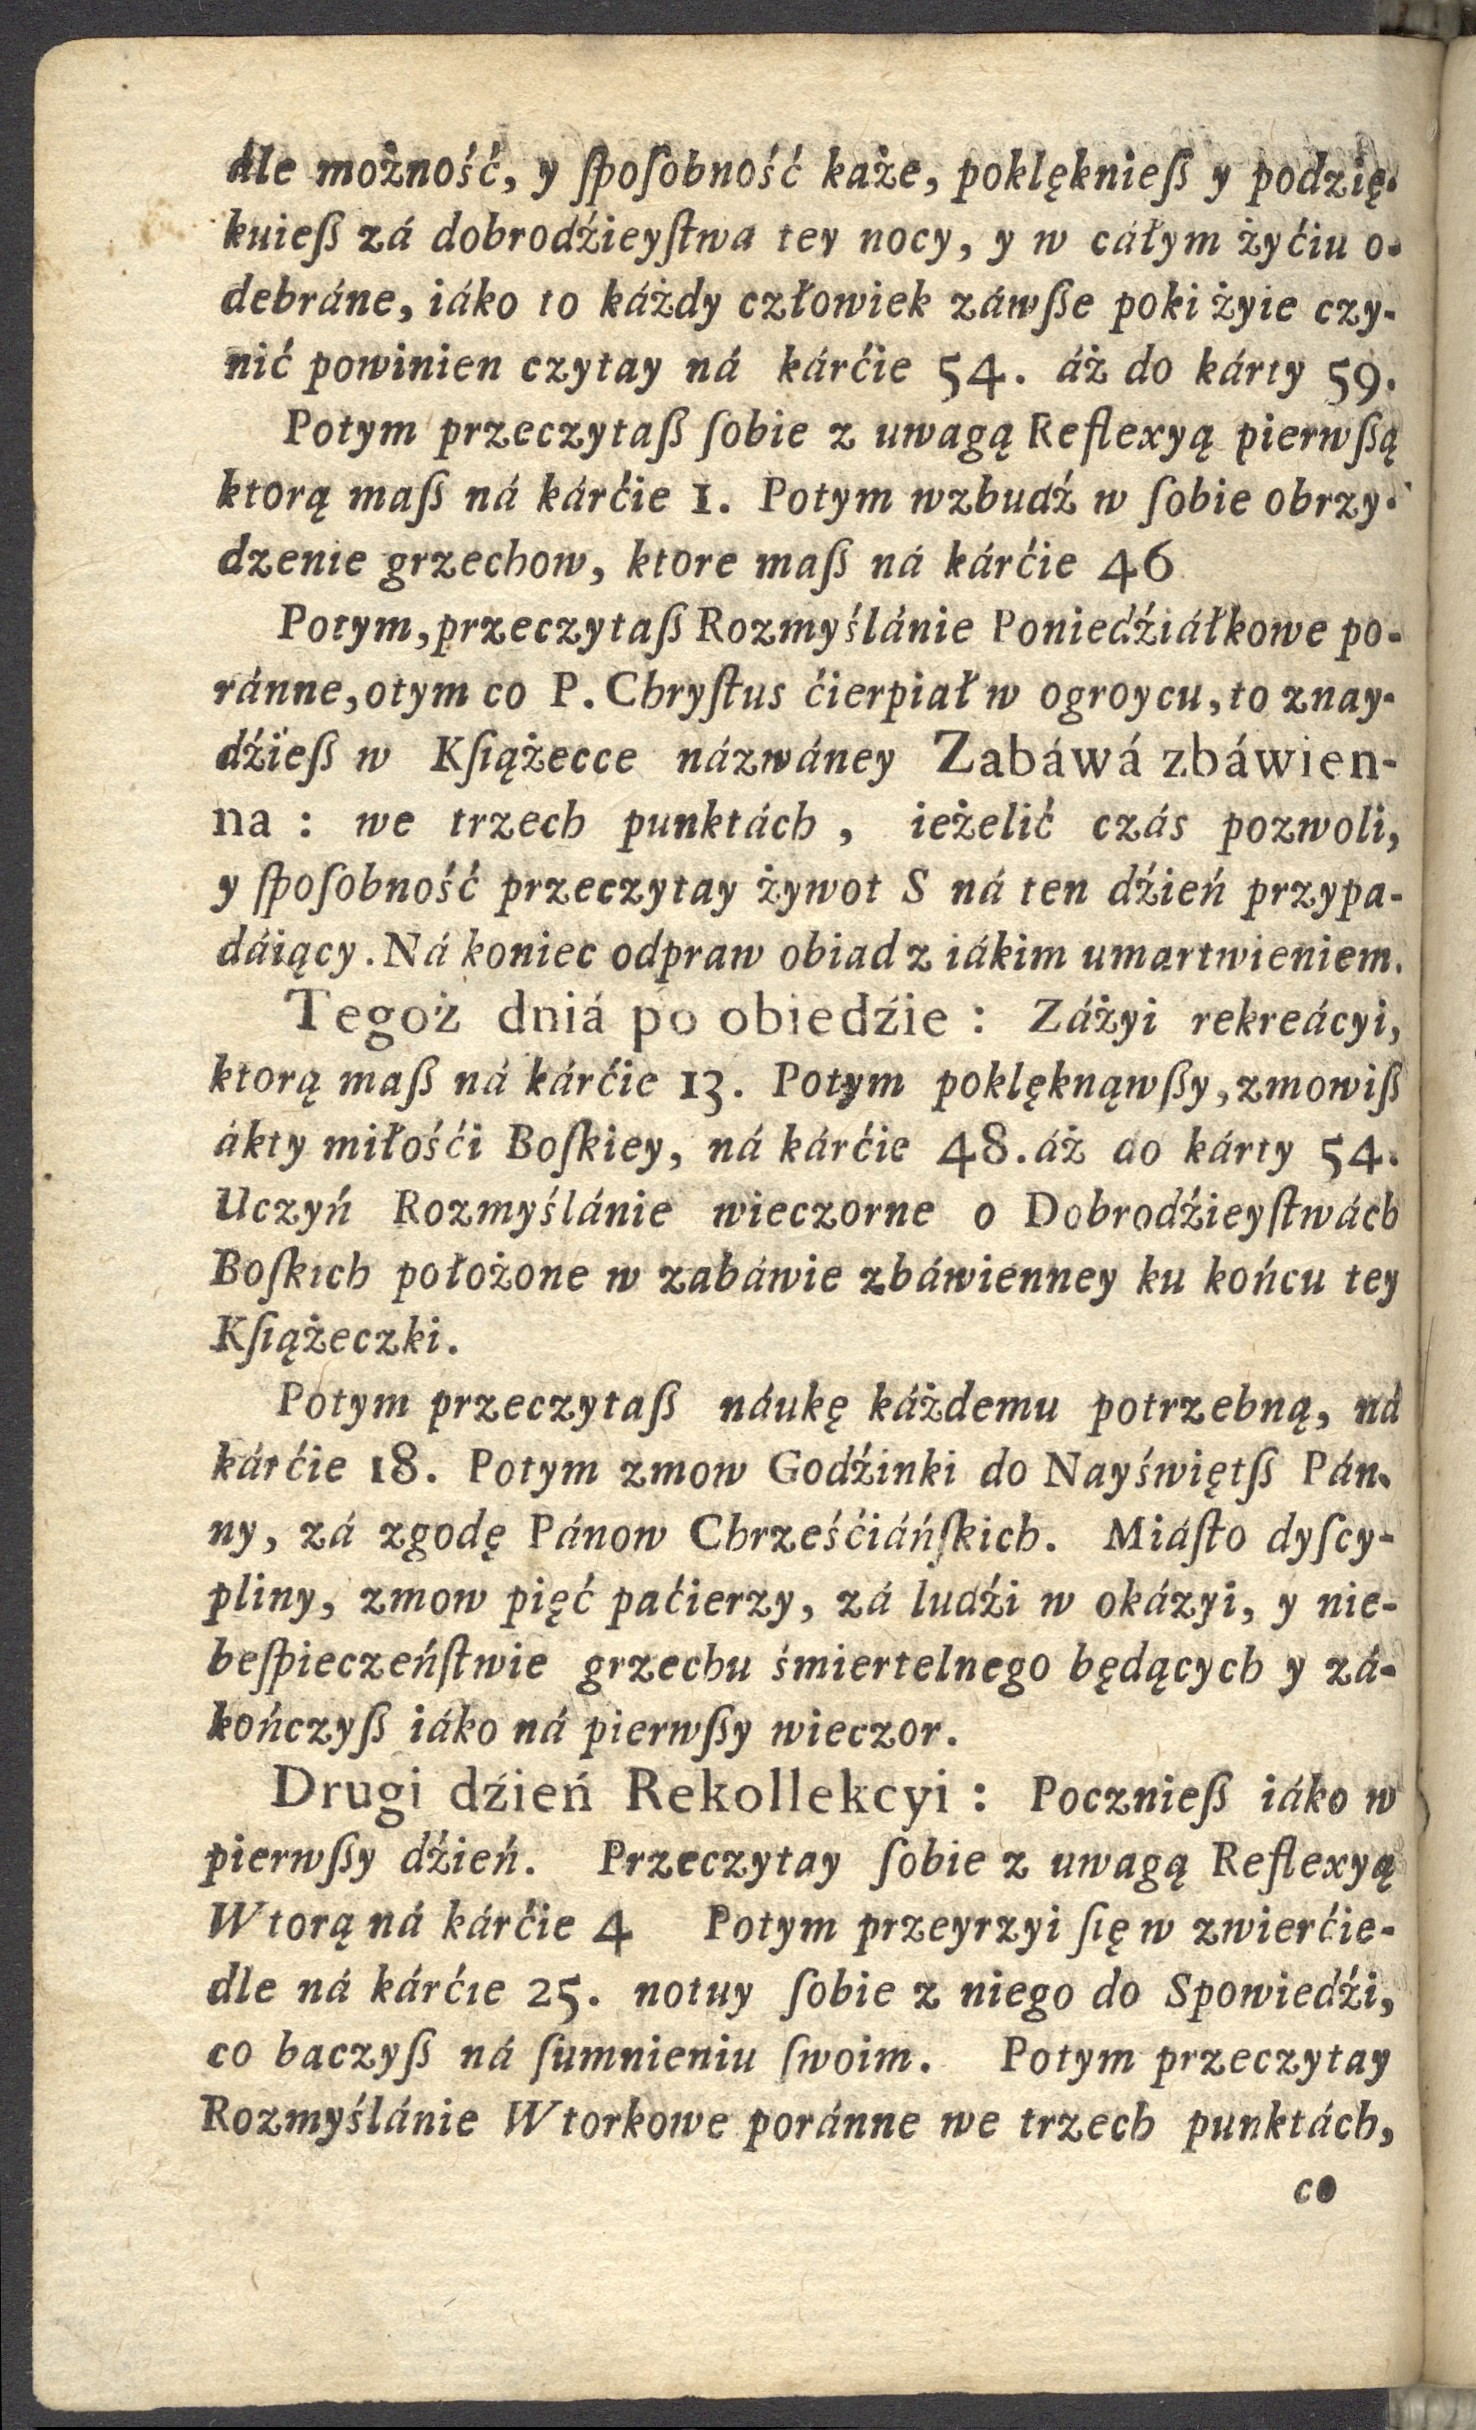 dle możność, y ſpoſobność każe, poklęknieß y podzię-
kuieß zá dobrodźieyſtwa tey nocy, y w cáłym żyćiu o-
debráne, iáko to káżdy człowiek záwße poki żyie czy-
nić powinien czytay ná kárćie 54. áż do kárty 59.
Potym przeczytaß ſobie z uwagą Reflexyą pierwßą
ktorą maß ná kárćie 1. Potym wzbudź w ſobie obrzy-
dzenie grzechow, ktore maß ná kárćie 46
Potym, przeczytaß Rozmyślánie Poniedźiáłkowe po-
ránne, otym co P. Chryſtus ćierpiał w ogroycu, to znay-
dźieß w Kſiążecce názwáney Zabáwá zbáwien-
na : we trzech punktách , ieżelić czás pozwoli,
y ſpoſobność przeczytay żywot S ná ten dźień przypa-
dáiący. Ná koniec odpraw obiad z iákim umartwieniem.
Tegoż dniá po obiedźie : Záżyi rekreácyi,
ktorą maß ná kárćie 13. Potym poklęknąwßy, zmowiß
ákty miłośći Boſkiey, ná kárćie 48. áż do kárty 54.
Uczyń Rozmyślánie wieczorne o Dobrodźieyſtwách
Boſkich położone w zabáwie zbáwienney ku końcu tey
Kſiążeczki.
Potym przeczytaß náukę káżdemu potrzebną, ná
kárćie 18. Potym zmow Godźinki do Nayświętß Pán-
ny, zá zgodę Pánow Chrześćiáńſkich. Miáſto dyſcy-
pliny, zmow pięć paćierzy, zá ludźi w okázyi, y nie-
beſpieczeńſtwie grzechu śmiertelnego będących y zá-
kończyß iáko ná pierwßy wieczor.
Drugi dźień Rekollekcyi : Pocznieß iáko w
pierwßy dźień. Przeczytay ſobie z uwagą Reflexyą
Wtorą ná kárćie 4 Potym przeyrzyi ſię w zwierćie-
dle ná kárćie 25. notuy ſobie z niego do Spowiedźi,
co baczyß ná ſumnieniu ſwoim. Potym przeczytay
Rozmyślánie Wtorkowe poránne we trzech punktách,
co